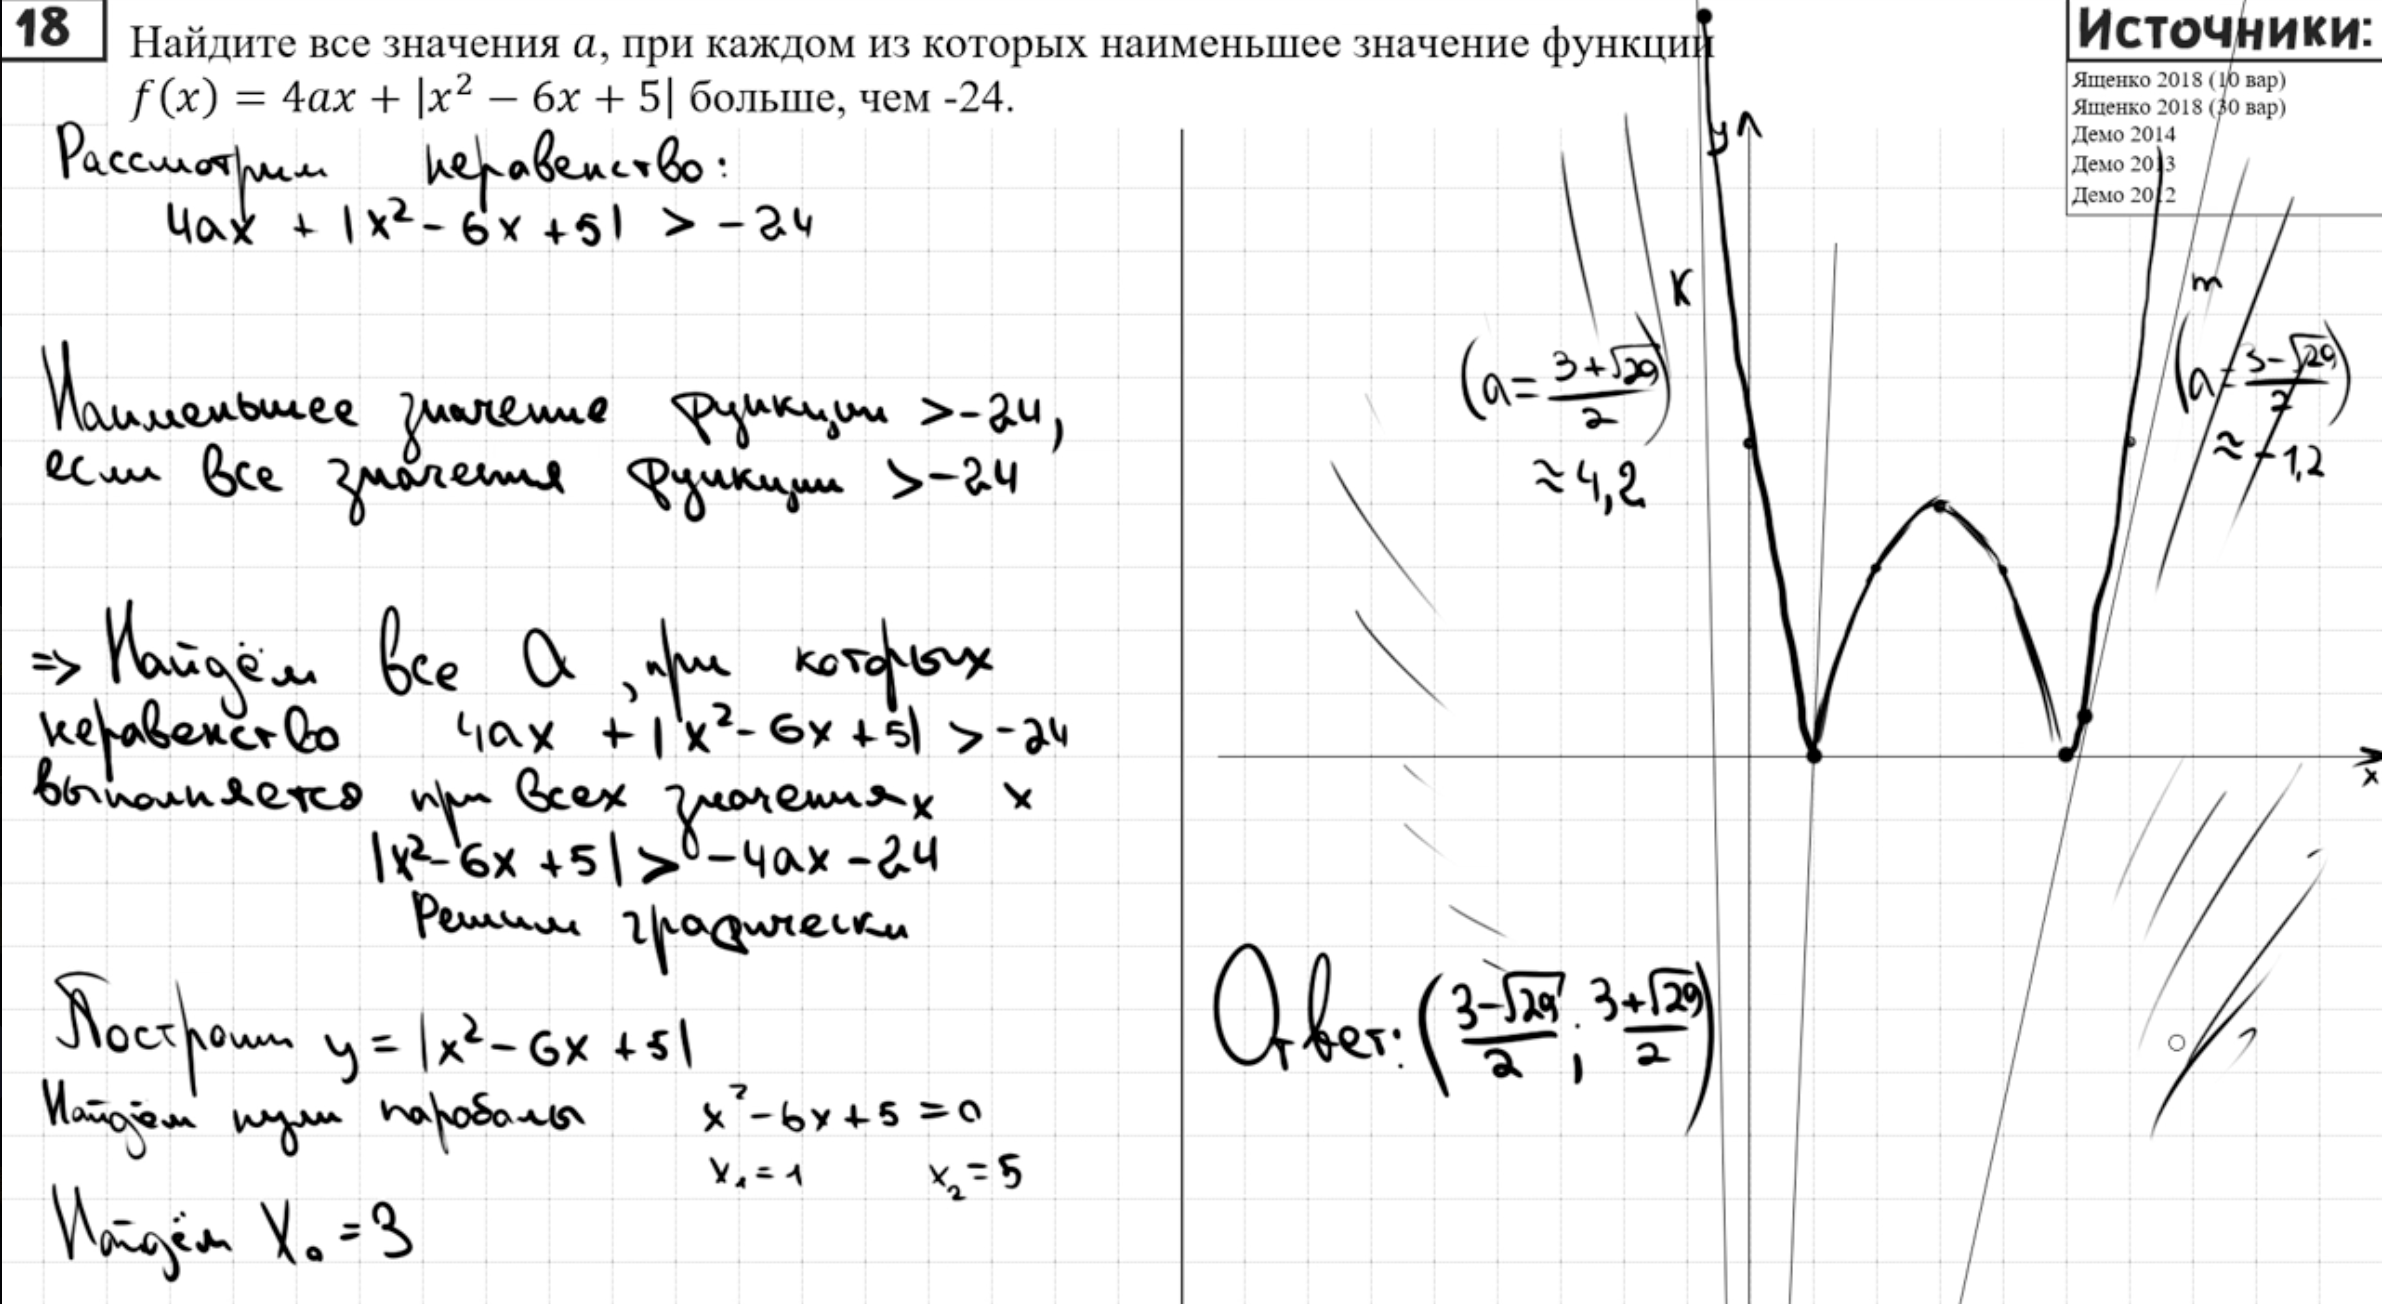 18
Найдите все значения a, при каждом из которых наименьшее значение функции
f(x) = 4ax + |x² − 6x + 5| больше, чем -24.
Рассмотрим неравенство:
4ax + |x² - 6x + 5| > -24
Наименьшее значение функции > -24,
если все значения функции > -24
=> Найдём все a, при которых
неравенство 4ax + |x² - 6x + 5| > -24
выполняется при всех значениях x
|x² - 6x + 5| > -4ax - 24
Решим графически
Построим y = |x² - 6x + 5|
Найдём нули параболы x² - 6x + 5 = 0
x₁ = 1 x₂ = 5
Найдём x₀ = 3
Источники:
Ященко 2018 (10 вар)
Ященко 2018 (30 вар)
Демо 2014
Демо 2013
Демо 2012
y
к
m
(a = (3+√29)/2)
≈ 4,2
(a = (3-√29)/2)
≈ -1,2
x
Ответ: ((3-√29)/2 ; (3+√29)/2)